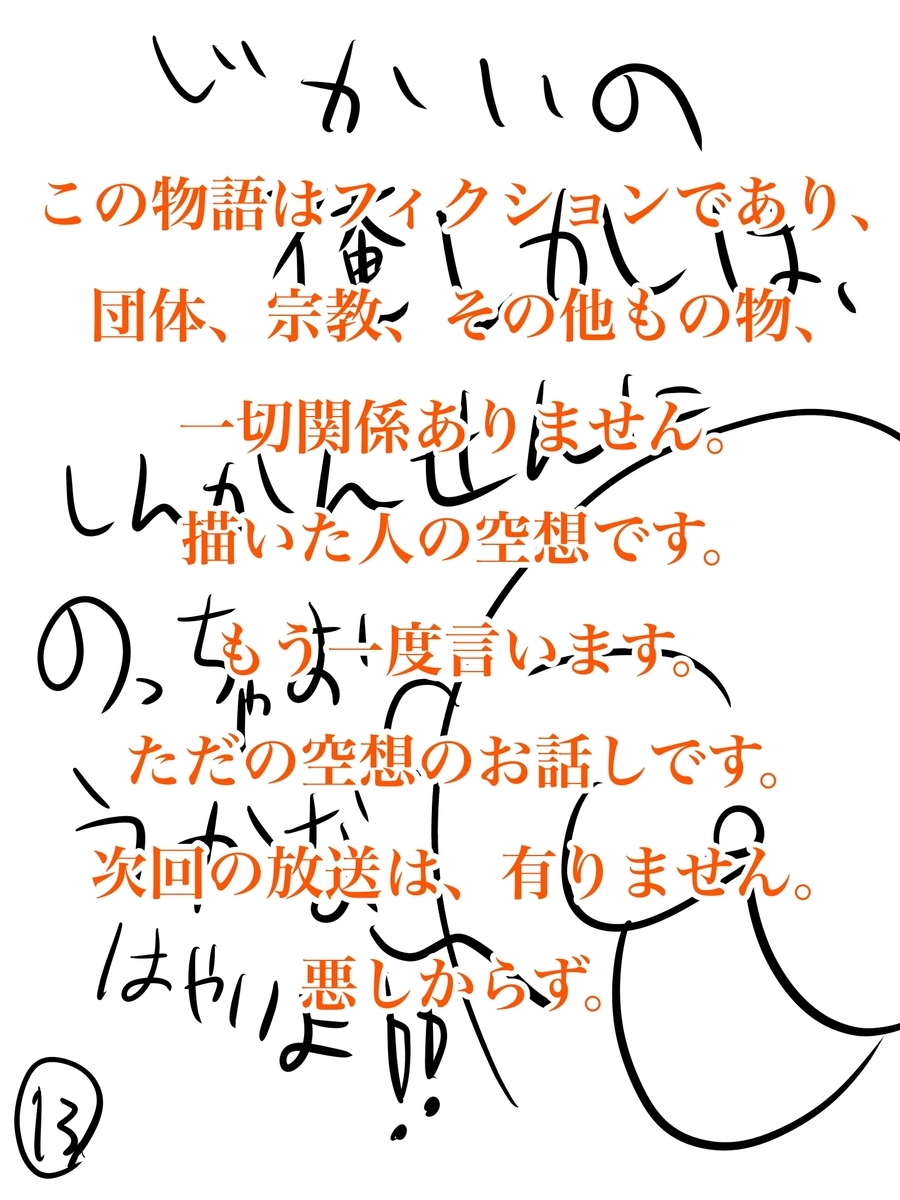 じかいの
俺しかしは、
しんかんせんに
のっちゃお
うかな〜
はやいよ!!
この物語はフィクションであり、
団体、宗教、その他もの物、
一切関係ありません。
描いた人の空想です。
もう一度言います。
ただの空想のお話しです。
次回の放送は、有りません。
悪しからず。
13